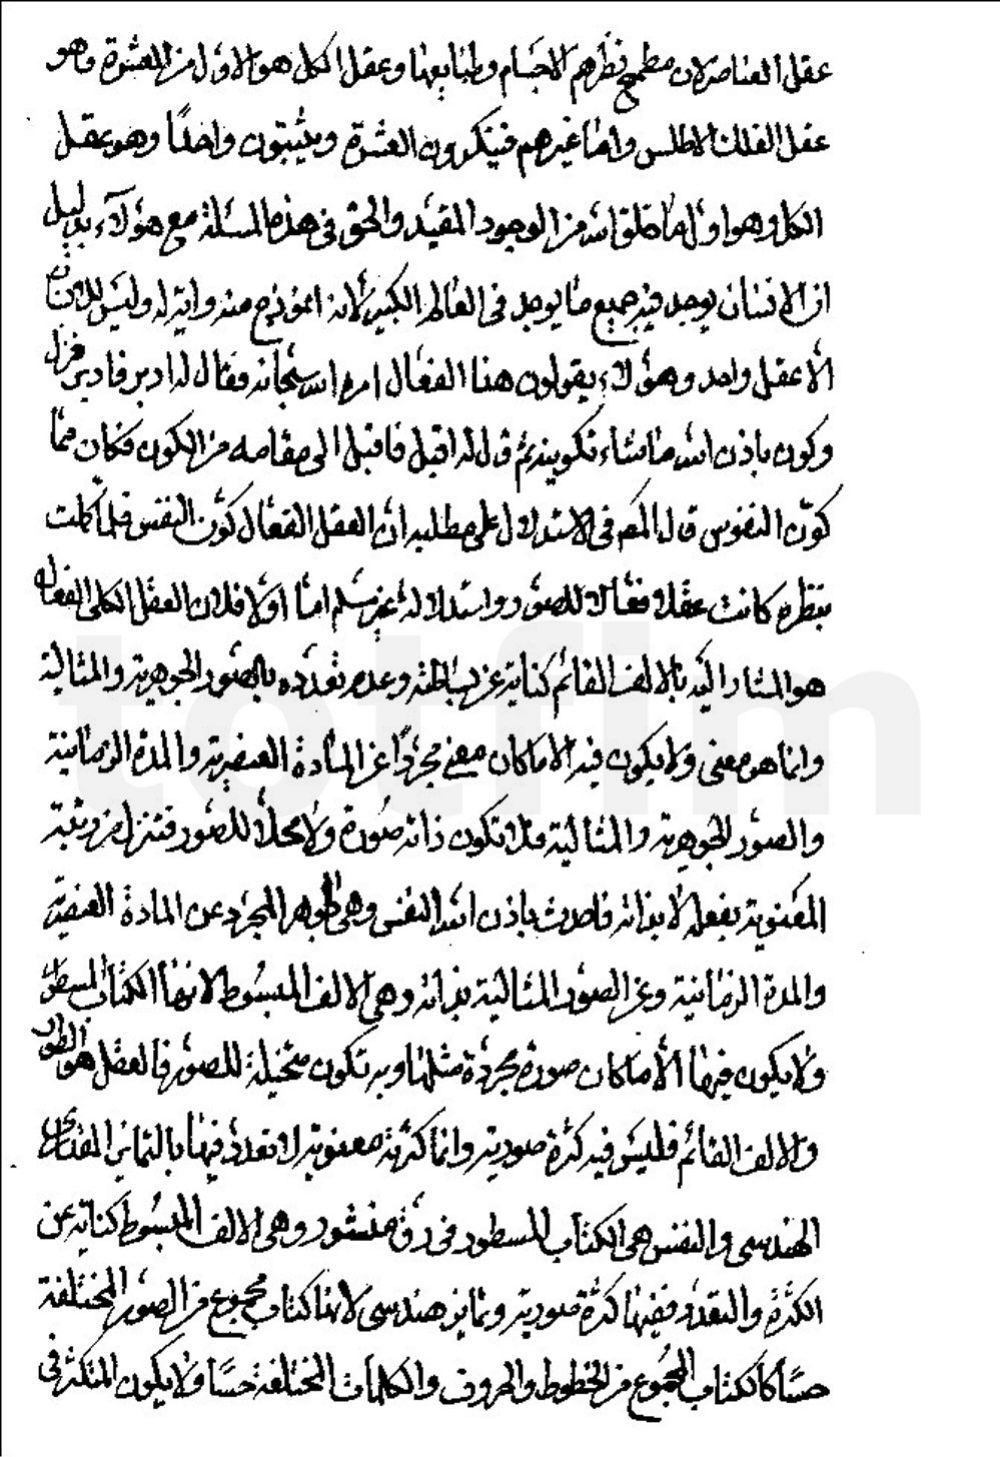 عقل العناصر لان مطمح نظرهم الاجسام وطبايعها وعقل الكل هو الاول من العشرة وهو
عقل الفلك الاطلس واما غيرهم فينكرون العشرة ويثبتون واحدًا وهو عقل
الكل وهو اول ما خلق الله من الوجود المقيد والحق في هذه المسئلة مع هؤلاء بدليل
ان الانسان يوجد فيه جميع ما يوجد في العالم الكبير لانه انموذج منه واية له وليس للانسان
الا عقل واحد وهؤلاء يقولون هذا الفعال امره الله سبحانه فقال له ادبر فادبر فنزل
وكون باذن الله ما شاء تكوينه ثم قال له اقبل فاقبل الى مقامه من الكون فكان مما
كوّن النفوس قال المص في الاستدلال على مطلبه ان العقل الفعال كوّن النفس فلما كملت
بنظره كانت عقلا فعالا للصور واستدلاله غير مسلم اما اولا فلان العقل الكلي الفعال
هو المشار اليه بالالف القائم كناية عن بساطته وعدم تعدده بالصور الجوهرية والمثالية
وانما هو معنى ولا يكون فيه الا ما كان معنى مجردًا عن المادة العنصرية والمدة الزمانية
والصور الجوهرية والمثالية فلا تكون ذاته صورة ولا محلا للصور فتنزل من رتبة
المعنوية بفعله لا بذاته فاحدث باذن الله النفس وهي الجوهر المجرد عن المادة العنصرية
والمدة الزمانية وعن الصور المثالية بذاته وهي الالف المبسوط لانها الكتاب المسطور
ولا يكون فيها الا ما كان صورة مجردة مثلها وبه تكون متخيلة للصور فالعقل هو الطور
والالف القائم فليس فيه كثرة صورية وانما كثرته معنوية لا تعدد فيها بالتمايز المقداري
الهندسي والنفس هي الكتاب المسطور في رق منشور وهي الالف المبسوط كناية عن
الكثرة والتعدد ففيها كثرة صورية وتمايز هندسي لانها كتاب مجموع من الصور المختلفة
حسًا كالكتاب المجموع من الخطوط والحروف والكلمات المختلفة حسًا ولا يكون المتكثر في